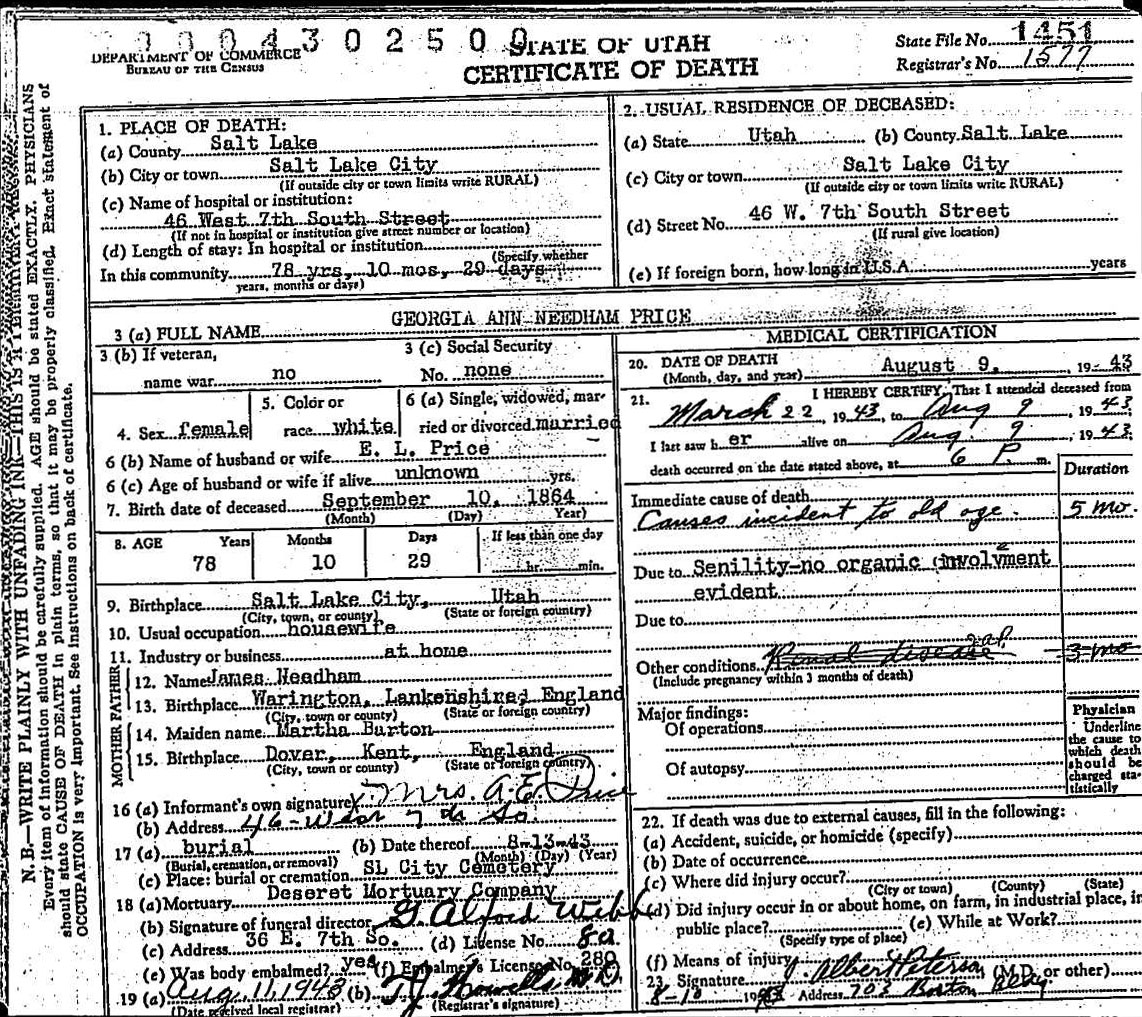 0004302500
DEPARTMENT OF COMMERCE
BUREAU OF THE CENSUS
STATE OF UTAH
CERTIFICATE OF DEATH
State File No. 1451
Registrar's No. 1577
N. B.—WRITE PLAINLY WITH UNFADING INK—THIS IS A PERMANENT RECORD. PHYSICIANS
Every item of information should be carefully supplied. AGE should be stated EXACTLY. PHYSICIANS
should state CAUSE OF DEATH in plain terms, so that it may be properly classified. Exact statement of
OCCUPATION is very important. See instructions on back of certificate.
1. PLACE OF DEATH:
(a) County Salt Lake
(b) City or town Salt Lake City
(If outside city or town limits write RURAL)
(c) Name of hospital or institution:
46 West 7th South Street
(If not in hospital or institution give street number or location)
(d) Length of stay: In hospital or institution
(Specify whether
In this community 78 yrs, 10 mos, 29 days
years, months or days)
2. USUAL RESIDENCE OF DECEASED:
(a) State Utah (b) County Salt Lake
(c) City or town Salt Lake City
(If outside city or town limits write RURAL)
(d) Street No. 46 W. 7th South Street
(If rural give location)
(e) If foreign born, how long in U.S.A. years
3 (a) FULL NAME GEORGIA ANN NEEDHAM PRICE
3 (b) If veteran,
name war no
3 (c) Social Security
No. none
4. Sex female
5. Color or
race white
6 (a) Single, widowed, mar-
ried or divorced married
6 (b) Name of husband or wife E. L. Price
6 (c) Age of husband or wife if alive unknown yrs.
7. Birth date of deceased September 10, 1864
(Month) (Day) Year)
8. AGE Years Months Days If less than one day
78 10 29 hr. min.
9. Birthplace Salt Lake City, Utah
(City, town, or county) (State or foreign country)
10. Usual occupation housewife
11. Industry or business at home
FATHER
12. Name James Needham
13. Birthplace Warington, Lankenshired England
(City, town or county) (State or foreign country)
MOTHER
14. Maiden name Martha Barton
15. Birthplace Dover, Kent, England
(City, town or county) (State or foreign country)
16 (a) Informant's own signature x Mrs. A. E. Price
(b) Address 46 - West 7th So.
17 (a) burial (b) Date thereof 8-13-43
(Burial, cremation, or removal) (Month) (Day) (Year)
(c) Place: burial or cremation SL City Cemetery
18 (a) Mortuary Deseret Mortuary Company
(b) Signature of funeral director G Alford Webb
(c) Address 36 E. 7th So. (d) License No. 80
(e) Was body embalmed? yes (f) Embalmer's License No. 280
19 (a) Aug 11, 1943 (b) T J Howells M.D.
(Date received local registrar) (Registrar's signature)
MEDICAL CERTIFICATION
20. DATE OF DEATH August 9, 19 43
(Month, day, and year)
21. I HEREBY CERTIFY, That I attended deceased from
March 22, 1943, to Aug 9, 1943
I last saw h er alive on Aug. 9, 1943
death occurred on the date stated above, at 6 P. m.
Duration
Immediate cause of death
Causes incident to old age. 5 mo.
Due to Senility-no organic involvment
evident
Due to
Other conditions Renal disease 3 mo
(Include pregnancy within 3 months of death)
Major findings:
Of operations
Of autopsy
Physician
Underline
the cause to
which death
should be
charged sta-
tistically
22. If death was due to external causes, fill in the following:
(a) Accident, suicide, or homicide (specify)
(b) Date of occurrence
(c) Where did injury occur?
(City or town) (County) (State)
(d) Did injury occur in or about home, on farm, in industrial place, in
public place? (e) While at Work?
(Specify type of place)
(f) Means of injury
23. Signature J. Albert Peterson (M.D. or other)
8-10 1943 Address 703 Boston Bldg